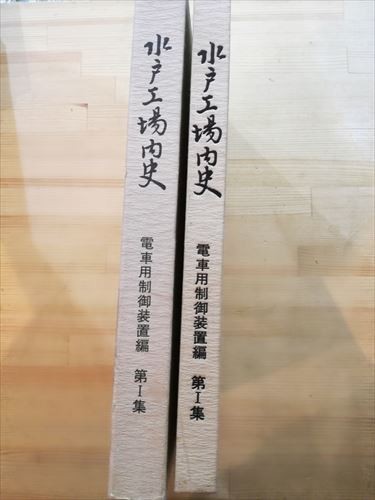 水戸工場内史
電車用制御装置編 第I集
水戸工場内史
電車用制御装置編 第I集